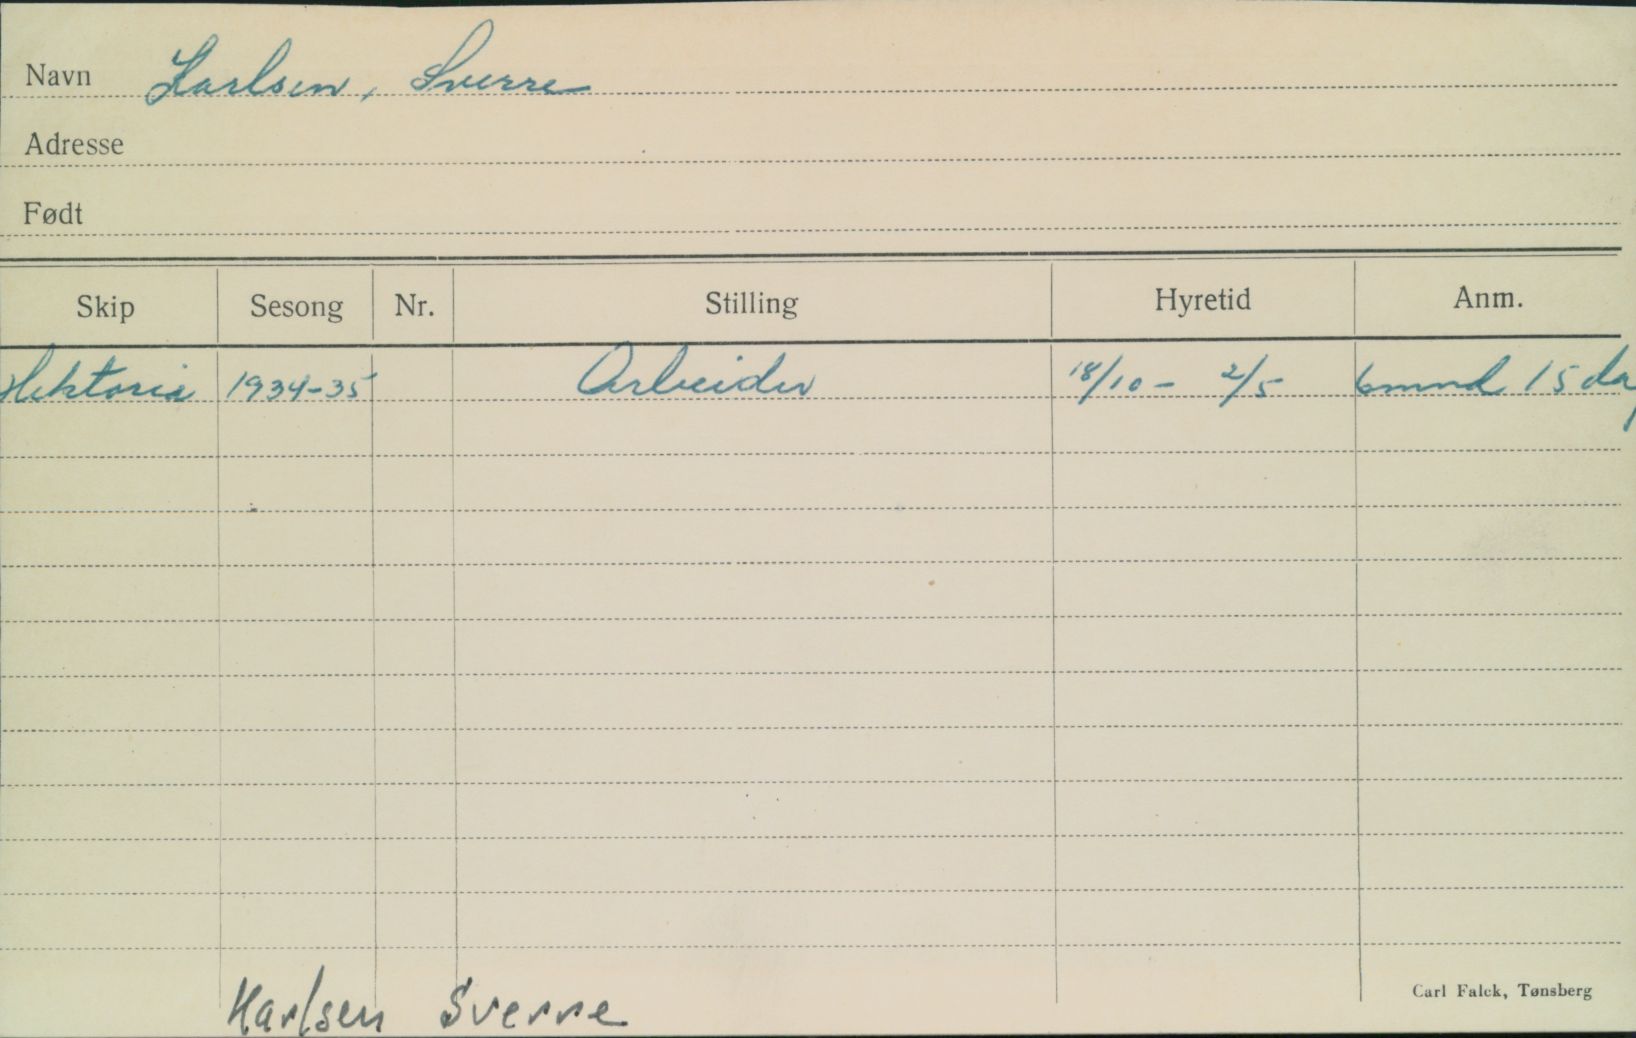 Navn Karlsen, Sverre
Adresse
Født
Skip Sesong Nr. Stilling Hyretid Anm.
Hektoria 1934-35 Arbeider 18/10 - 2/5 6 mnd 15 dag
Carl Falck, Tønsberg
Karlsen Sverre